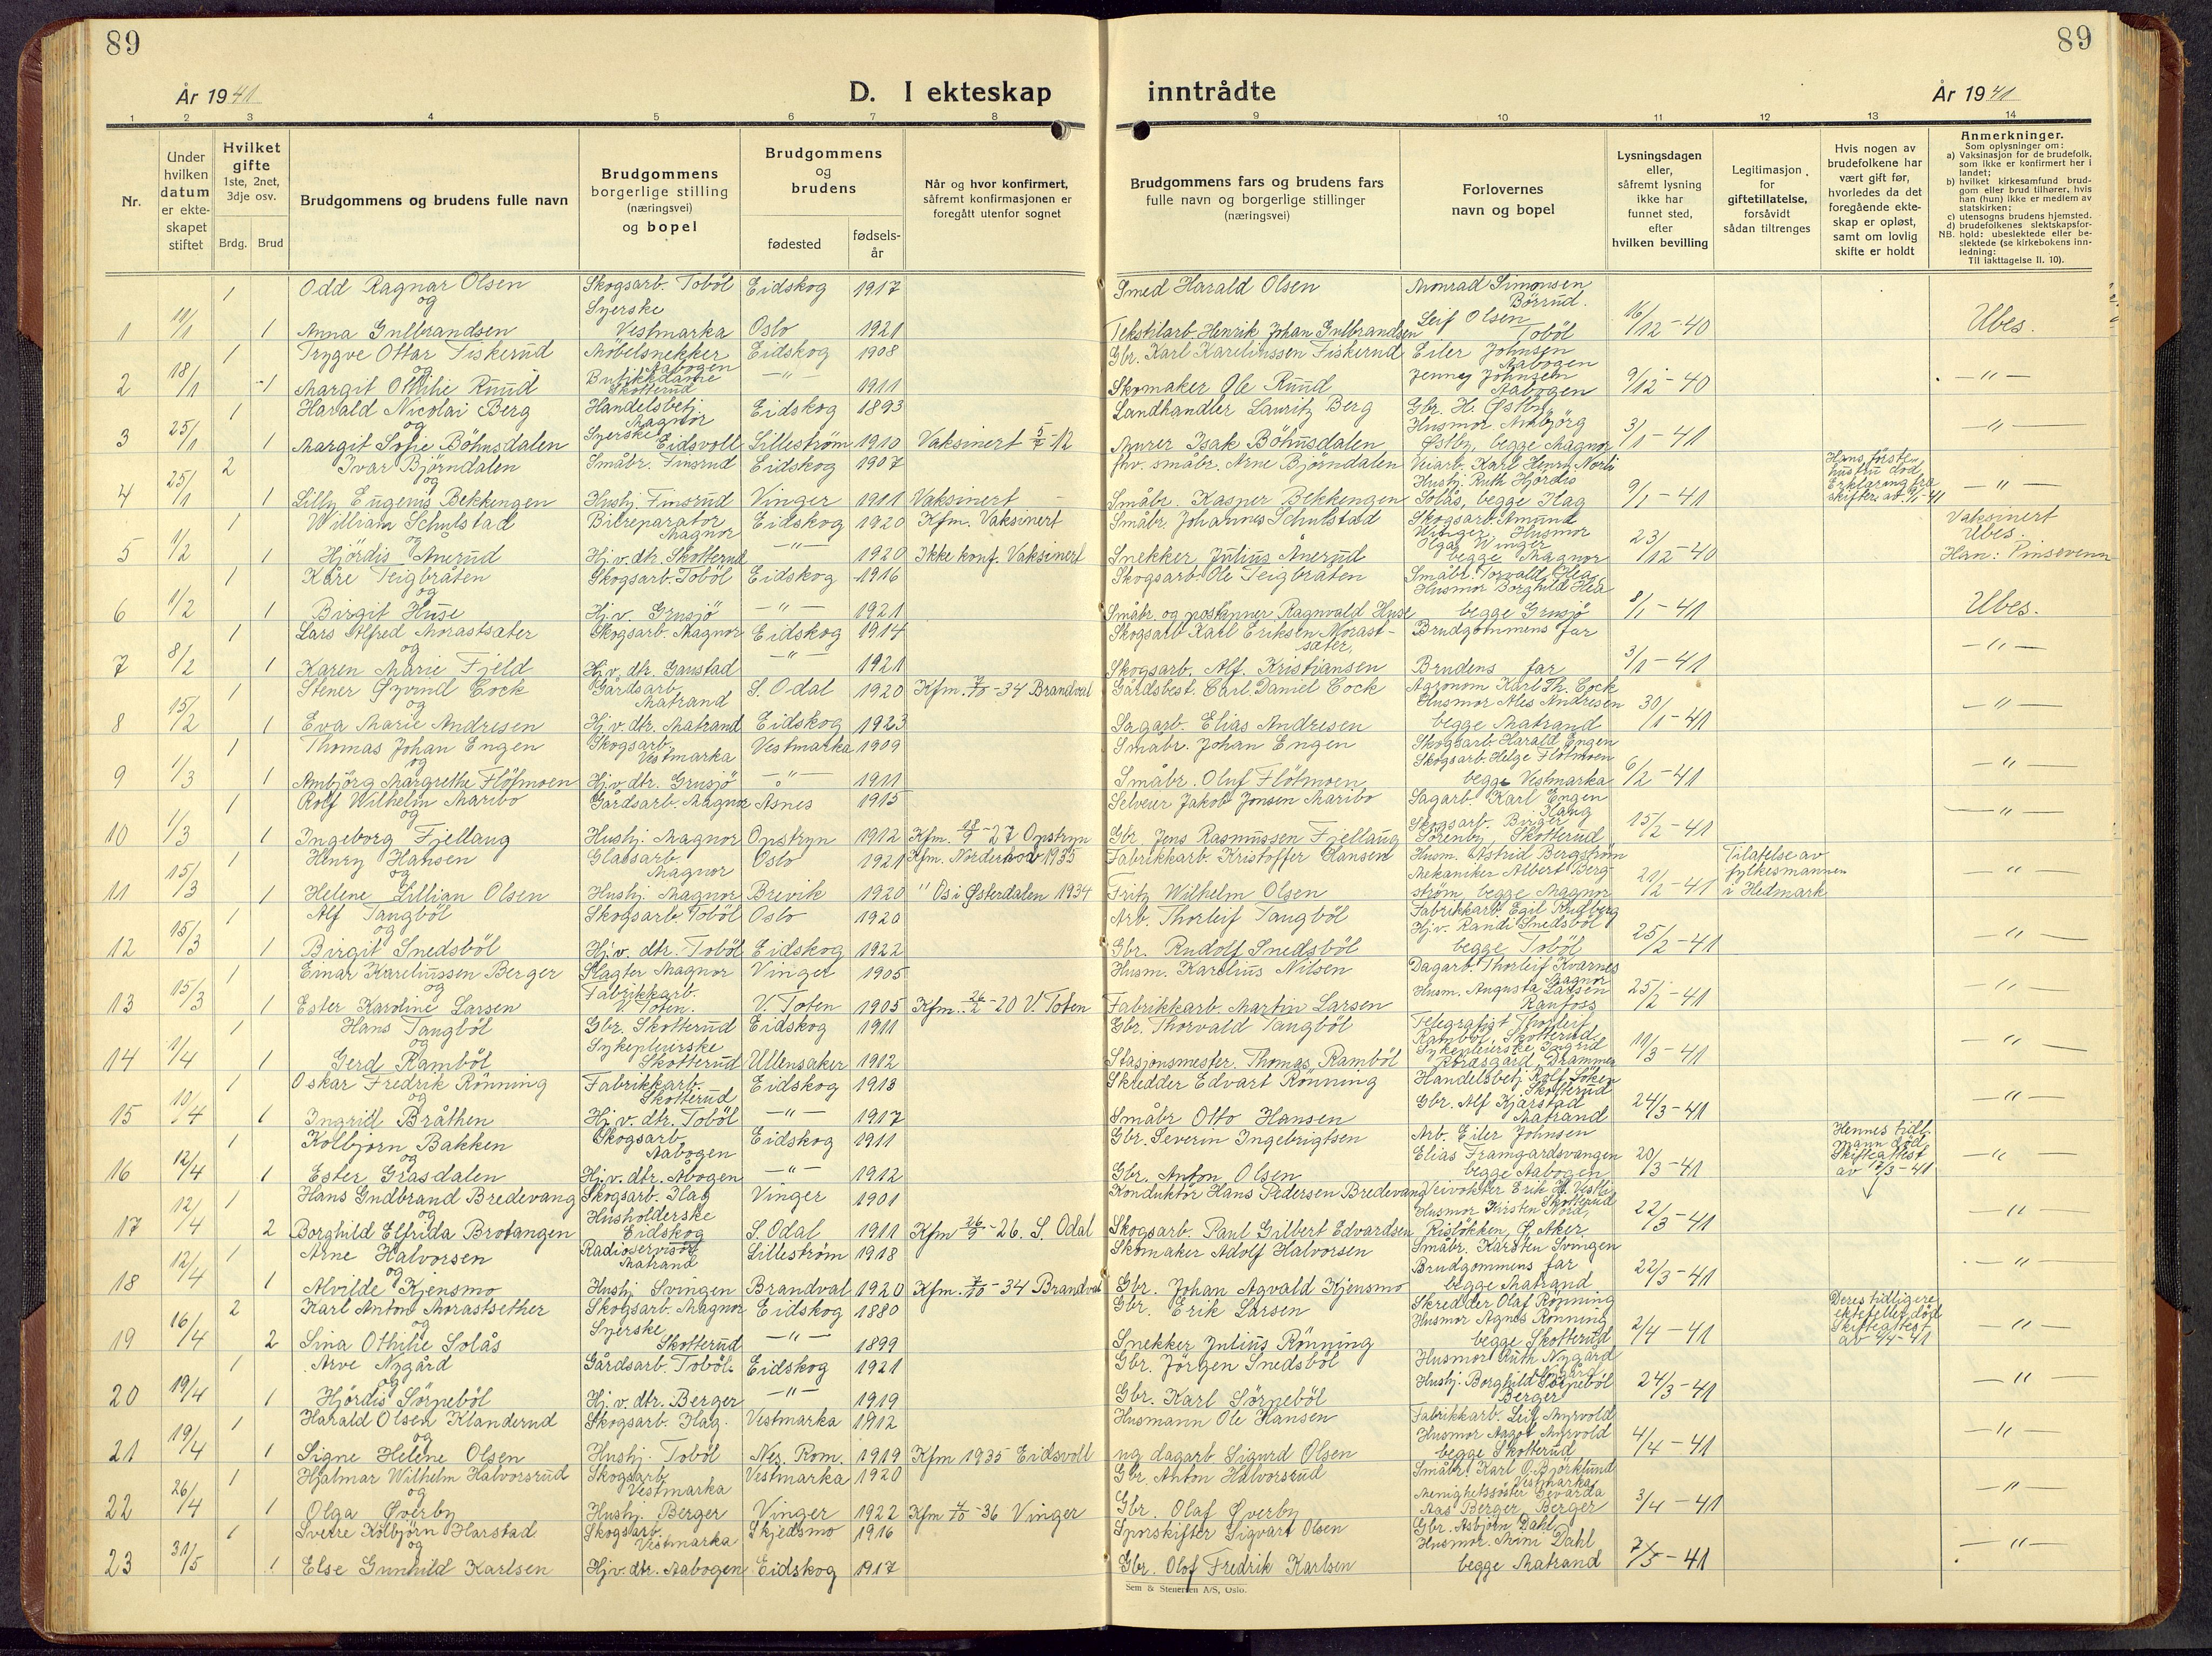 89
89
År 1941
D. I ekteskap inntrådte
År 1941
1 2 3 4 5 6 7 8 9 10 11 12 13 14
Nr.
Under hvilken datum er ekte-skapet stiftet
Hvilket gifte
1ste, 2net, 3dje osv.
Brdg. Brud
Brudgommens og brudens fulle navn
Brudgommens borgerlige stilling (næringsvei) og bopel
Brudgommens og brudens
fødested
fødsels-år
Når og hvor konfirmert, såfremt konfirmasjonen er foregått utenfor sognet
Brudgommens fars og brudens fars fulle navn og borgerlige stillinger (næringsvei)
Forlovernes navn og bopel
Lysningsdagen eller, såfremt lysning ikke har funnet sted, efter hvilken bevilling
Legitimasjon for giftetillatelse, forsåvidt sådan tiltrenges
Hvis nogen av brudefolkene har vært gift før, hvorledes da det foregående ekte-skap er opløst, samt om lovlig skifte er holdt
Anmerkninger.
Som oplysninger om:
a) Vaksinasjon for de brudefolk, som ikke er konfirmert her i landet;
b) hvilket kirkesamfund brud-gom eller brud tilhører, hvis han (hun) ikke er medlem av statskirken;
c) utensogns brudens hjemsted.
d) brudefolkenes slektskapsfor-hold: ubeslektede eller be-slektede (se kirkebokens inn-ledning:
NB.
Til iakttagelse II. 10).
1 Odd Ragnar Olsen Skogsarb. Toböl Eidskog 1917 Smed Harald Olsen Monrad Simonsen Börrud.
og
1 11/1 1 Anna Gulbrandsen Syerske Vestmarka Oslo 1921 Tekstilarb. Henrik Johan Gulbrandsen Leif Olsen Toböl 16/12-40 Ubes.
1 Trygve Ottar Fiskerud Möbelsnekker Aabogen Eidskog 1908 Gbr. Karl Kareliussen Fiskerud Eiler Johnsen Aabogen
og
2 18/1 1 Margit Othilie Ruud Butikkdame Skotterud -"- 1911 Skomaker Ole Ruud Jenny Johnsen Aabogen 9/12-40 -"-
1 Harald Nicolai Berg Handelsbetj. Magnor Eidskog 1893 Landhandler Lauritz Berg Gbr. H. Østby,
og
3 25/1 1 Margit Sofie Böhnsdalen Syerske Eidsvoll Lilleström 1910 Vaksinert 5/7-12 Murer Isak Böhnsdalen Husmor Ambjörg Østby, begge Magnor 3/1-41 -"-
2 Ivar Björndalen Småbr. Finsrud Eidskog 1907 fhv. småbr. Arne Björndalen Veiarb. Karl Henry Norli
og
4 25/1 1 Lilly Eugenis Bekkengen Hushj. Finsrud Vinger 1911 Vaksinert Småbr. Kasper Bekkengen Hushj. Ruth Hjördis Solås, begge Flag 9/1-41 Hans förste hustru död. Erklæring fra skifter. av 9/1-41 -"-
1 William Schulstad Bilreparatör Magnor Eidskog 1920 Kfm. Vaksinert Småbr. Johannes Schulstad Skogsarb. Amund Winger, Husmor
og
5 1/2 1 Hjördis Ånerud Hj.v. dtr. Skotterud -"- 1920 Ikke konf. Vaksinert Snekker Julius Ånerud Olga Winger begge Magnor 23/12-40 Vaksinert Ubes. Han: Pinsevenn
1 Kåre Teigbråten Skogsarb. Toböl Eidskog 1916 Skogsarb. Ole Teigbråten Småbr. Torvald Hea,
og
6 1/2 1 Birgit Huse Hj.v. Grusjö -"- 1921 Småbr. og postäpner Ragnvald Huse Husmor Borghild Hea begge Grusjö 8/1-41 Ubes.
1 Lars Alfred Morastsæter Skogsarb. Magnor Eidskog 1914 Skogsarb Karl Eriksen Morast-sæter. Brudgommens far
og
7 8/2 1 Karen Marie Fjeld Hj.v. dtr. Gaustad -"- 1921 Skogsarb. Alf. Kristiansen Brudens far 3/1-41 -"-
1 Stener Øyvind Cock Gårdsarb. Matrand S. Odal 1920 Kfm. 7/10-34 Brandval Gårdsbest. Carl Daniel Cock Agronom Karl Th. Cock
og
8 15/2 1 Eva Marie Andresen Hj.v. dtr. Matrand Eidskog 1923 Sagarb. Elias Andresen Husmor Ales Andresen begge Matrand 30/1-41 -"-
1 Thomas Johan Engen Skogsarb. Vestmarka Vestmarka 1909 Småbr. Johan Engen Skogsarb. Harald Engen
og
9 1/3 1 Ambjörg Margrethe Flötmoen Hj.v. dtr. Grusjö -"- 1911 Småbr. Oluf Flötmoen Skogsarb. Helge Flötmoen begge Vestmarka 6/2-41 -"-
1 Rolf Wilhelm Maribo Gårdsarb. Magnor Åsnes 1915 Selveier Jakob Jonsen Maribo Sagarb. Karl Engen
og
10 1/3 1 Ingeborg Fjellaug Hushj. Magnor Opstryn 1912 Kfm. 18/9-27 Opstryn Gbr. Jens Rasmussen Fjellaug Skogsarb. Birger Sörenby, Skotterud 15/2-41 -"-
1 Henry Hansen Glassarb. Magnor Oslo 1921 Kfm. Norderhov 1935 Fabrikkarb. Kristoffer Hansen Husm. Astrid Bergström
og
11 15/3 1 Helene Lillian Olsen Hushj. Magnor Brevik 1920 " Os i Østerdalen 1934 Fritz Wilhelm Olsen Mekaniker Albert Bergström begge Magnor 21/2-41 Tilatelse av fylkesmannen i Hedmark -"-
1 Alf Tangböl Skogsarb. Toböl Oslo 1920 Arb. Thorleif Tangböl Fabrikkarb. Egil Rudberg
og
12 15/3 1 Birgit Snedsböl Hj.v. dtr. Toböl Eidskog 1922 Gbr. Rudolf Snedsböl Hj.v. Randi Snedsböl begge Toböl 25/2-41 -"-
1 Einar Kareliussen Berger Slagter Magnor Vinger 1905 Husm. Karelius Nilsen Dagarb. Thorleif Kvarnes Magnor
og
13 15/3 1 Ester Karoline Larsen Fabrikkarb. V. Toten. V. Toten 1905 Kfm. 26/2-20 V. Toten Fabrikkarb. Martin Larsen Husm. Augusta Larsen Raufoss 25/2-41 -"-
1 Hans Tangböl Gbr. Skotterud Eidskog 1911 Gbr. Thorvald Tangböl Telegrafist Thorleif Ramböl, Skotterud
og
14 1/4 1 Gerd Ramböl Sykepleierske Skotterud Ullensaker 1912 Stasjonsmester. Thomas Ramböl Sykepleierske Ingrid Drammen 11/3-41 -"-
1 Oskar Fredrik Rönning Fabrikkarb. Skotterud Eidskog 1913 Skredder Edvart Rönning Handelsbetj. Rolf Löken Skotterud
og
15 10/4 1 Ingrid Bråthen Hj.v. dtr. Toböl -"- 1917 Småbr Otto Hansen Gbr. Alf Kjärstad Matrand 24/3-41 -"-
1 Kolbjörn Bakken Skogsarb Aabogen Eidskog 1911 Gbr. Severin Ingebrigtsen Arb. Eiler Johnsen
og
16 12/4 1 Ester Grasdalen Hj.v. dtr. Åbogen -"- 1912 Gbr. Anton Olsen Elias Framgardsvangen begge Aabogen 20/3-41 Hennes tidl. mann död. Skifteattest av 17/3-41 -"-
1 Hans Gudbrand Bredevang Skogsarb. Flag Vinger 1901 Konduktör Hans Pedersen Bredevang Veivokter Erik H. Vestli Skotterud
og
17 12/4 2 Borghild Elfrida Brotangen Husholderske Eidskog S. Odal 1911 Kfm 26/9-26. S. Odal Skogsarb. Paul Gilbert Edvardsen Husmor Kirsten Nord, Risløkken, Ø. Aker 22/3-41 -"-
1 Arne Halvorsen Radioservisör Matrand Lilleström 1918 Skomaker Adolf Halvorsen Småbr. Karsten Svingen
og
18 12/4 1 Alvilde Kjensmo Hushj Svingen Brandval 1920 Kfm. 7/10-34 Brandval Gbr. Johan Agvald Kjensmo Brudgommens far begge Matrand 22/3-41 -"-
2 Karl Anton Morastsether Skogsarb. Magnor Eidskog 1880 Gbr. Erik Larsen Skredder Olaf Rönning
og
19 16/4 2 Sina Othilie Solås Syerske Skotterud -"- 1899 Snekker Julius Rönning Husmor Agnes Rönning begge Skotterud 2/4-41 Deres tidligere ektefeller död Skifteattest av 4/4-41 -"-
1 Arve Nygård Gårdsarb. Toböl. Eidskog 1921 Gbr. Jörgen Snedsböl Husmor Ruth Nygård
og
20 19/4 1 Hjördis Sörneböl Hj.v. dtr. Berger -"- 1919 Gbr. Karl Sörneböl Hushj. Borghild Sörneböl Berger 24/3-41 -"-
1 Harald Olsen Klanderud Skogsarb. Flag. Vestmarka 1912 Husmann Ole Hansen Fabrikkarb. Leif Myrvold
og
21 19/4 1 Signe Helene Olsen Hushj. Toböl Nes, Rom. 1919 Kfm 1935 Eidsvoll ug dagarb Sigurd Olsen Husmor Aagot Myrvold begge Skotterud 4/4-41 -"-
1 Hjalmar Wilhelm Halvorsrud Skogsarb Vestmarka Vestmarka 1920 Gbr Anton Halvorsrud Småbr. Karl O. Björklund Vestmarka
og
22 26/4 1 Olga Øverby Hushj. Berger Vinger 1922 Kfm 4/10-36 Vinger Gbr. Olaf Øverby Menighetssöster Gevarda Aas Berger, Berger 3/4-41 -"-
1 Sverre Kolbjörn Harstad Skogsarb. Vestmarka Skjedsmo 1916 Sporskifter Sigvart Olsen Gbr. Asbjörn Dahl
og
23 31/5 1 Else Gunhild Karlsen Hj.v. dtr. Aabogen Eidskog 1917 Gbr. Olof Fredrik Karlsen Husmor. Mimi Dahl begge Matrand 7/5-41 -"-
Sem & Stenersen A/S, Oslo.